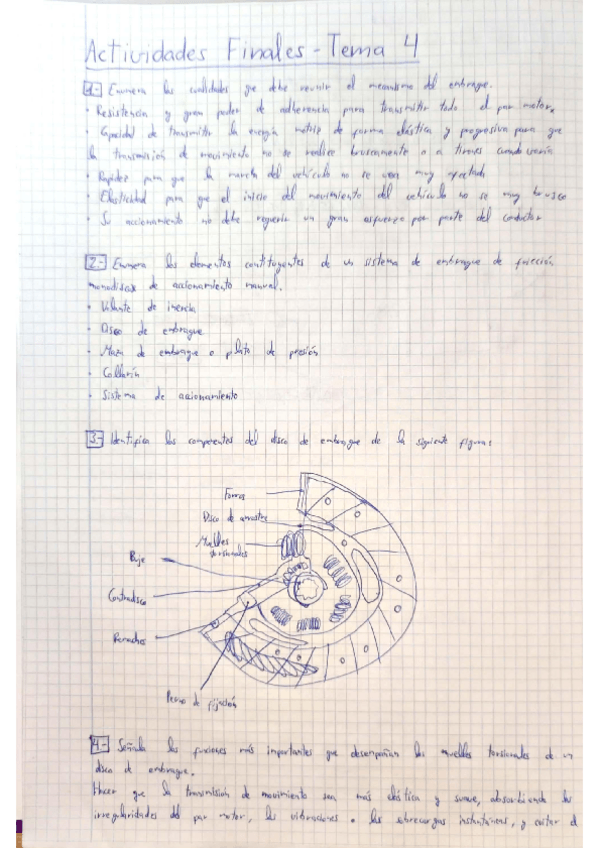 Actividades Finales - Tema 4
1- Enumera las cualidades que debe reunir el mecanismo del embrague.
· Resistencia y gran poder de adherencia para transmitir todo el par motor.
· Capacidad de transmitir la energía motriz de forma elástica y progresiva para que
la transmisión de movimiento no se realice bruscamente o a tirones cuando varía
· Rapidez para que la marcha del vehículo no se vea muy afectada
· Elasticidad para que el inicio del movimiento del vehículo no se muy brusco
· Su accionamiento no debe requerir un gran esfuerzo por parte del conductor
2- Enumera los elementos constituyentes de un sistema de embrague de fricción
monodisco de accionamiento manual.
· Volante de inercia
· Disco de embrague
· Maza de embrague o plato de presión
· Collarín
· Sistema de accionamiento
3- Identifica los componentes del disco de embrague de la siguiente figura:
Forros
Disco de arrastre
Muelles
torsionales
Buje
Contradisco
Remaches
Perno de fijación
4- Señala las funciones más importantes que desempeñan los muelles torsionales de un
disco de embrague.
Hacer que la transmisión de movimiento sea más elástica y suave, absorbiendo las
irregularidades del par motor, las vibraciones o las sobrecargas instantáneas, y evitar el